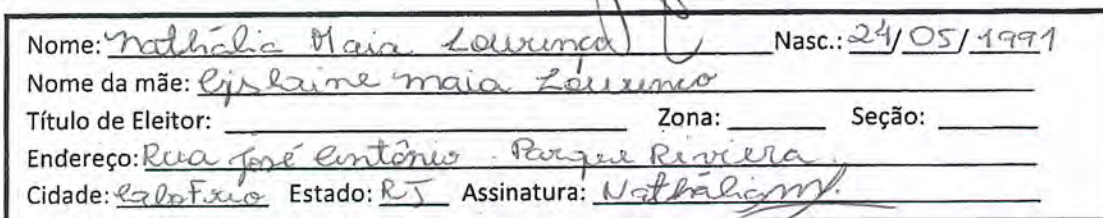 Nome: Nathália Maia Lourenço Nasc.: 24/05/1991
Nome da mãe: Gislaine maia Lourenço
Título de Eleitor: Zona: Seção:
Endereço: Rua José Antônio. Parque Riviera.
Cidade: Cabo Frio Estado: RJ Assinatura: Nathália M.